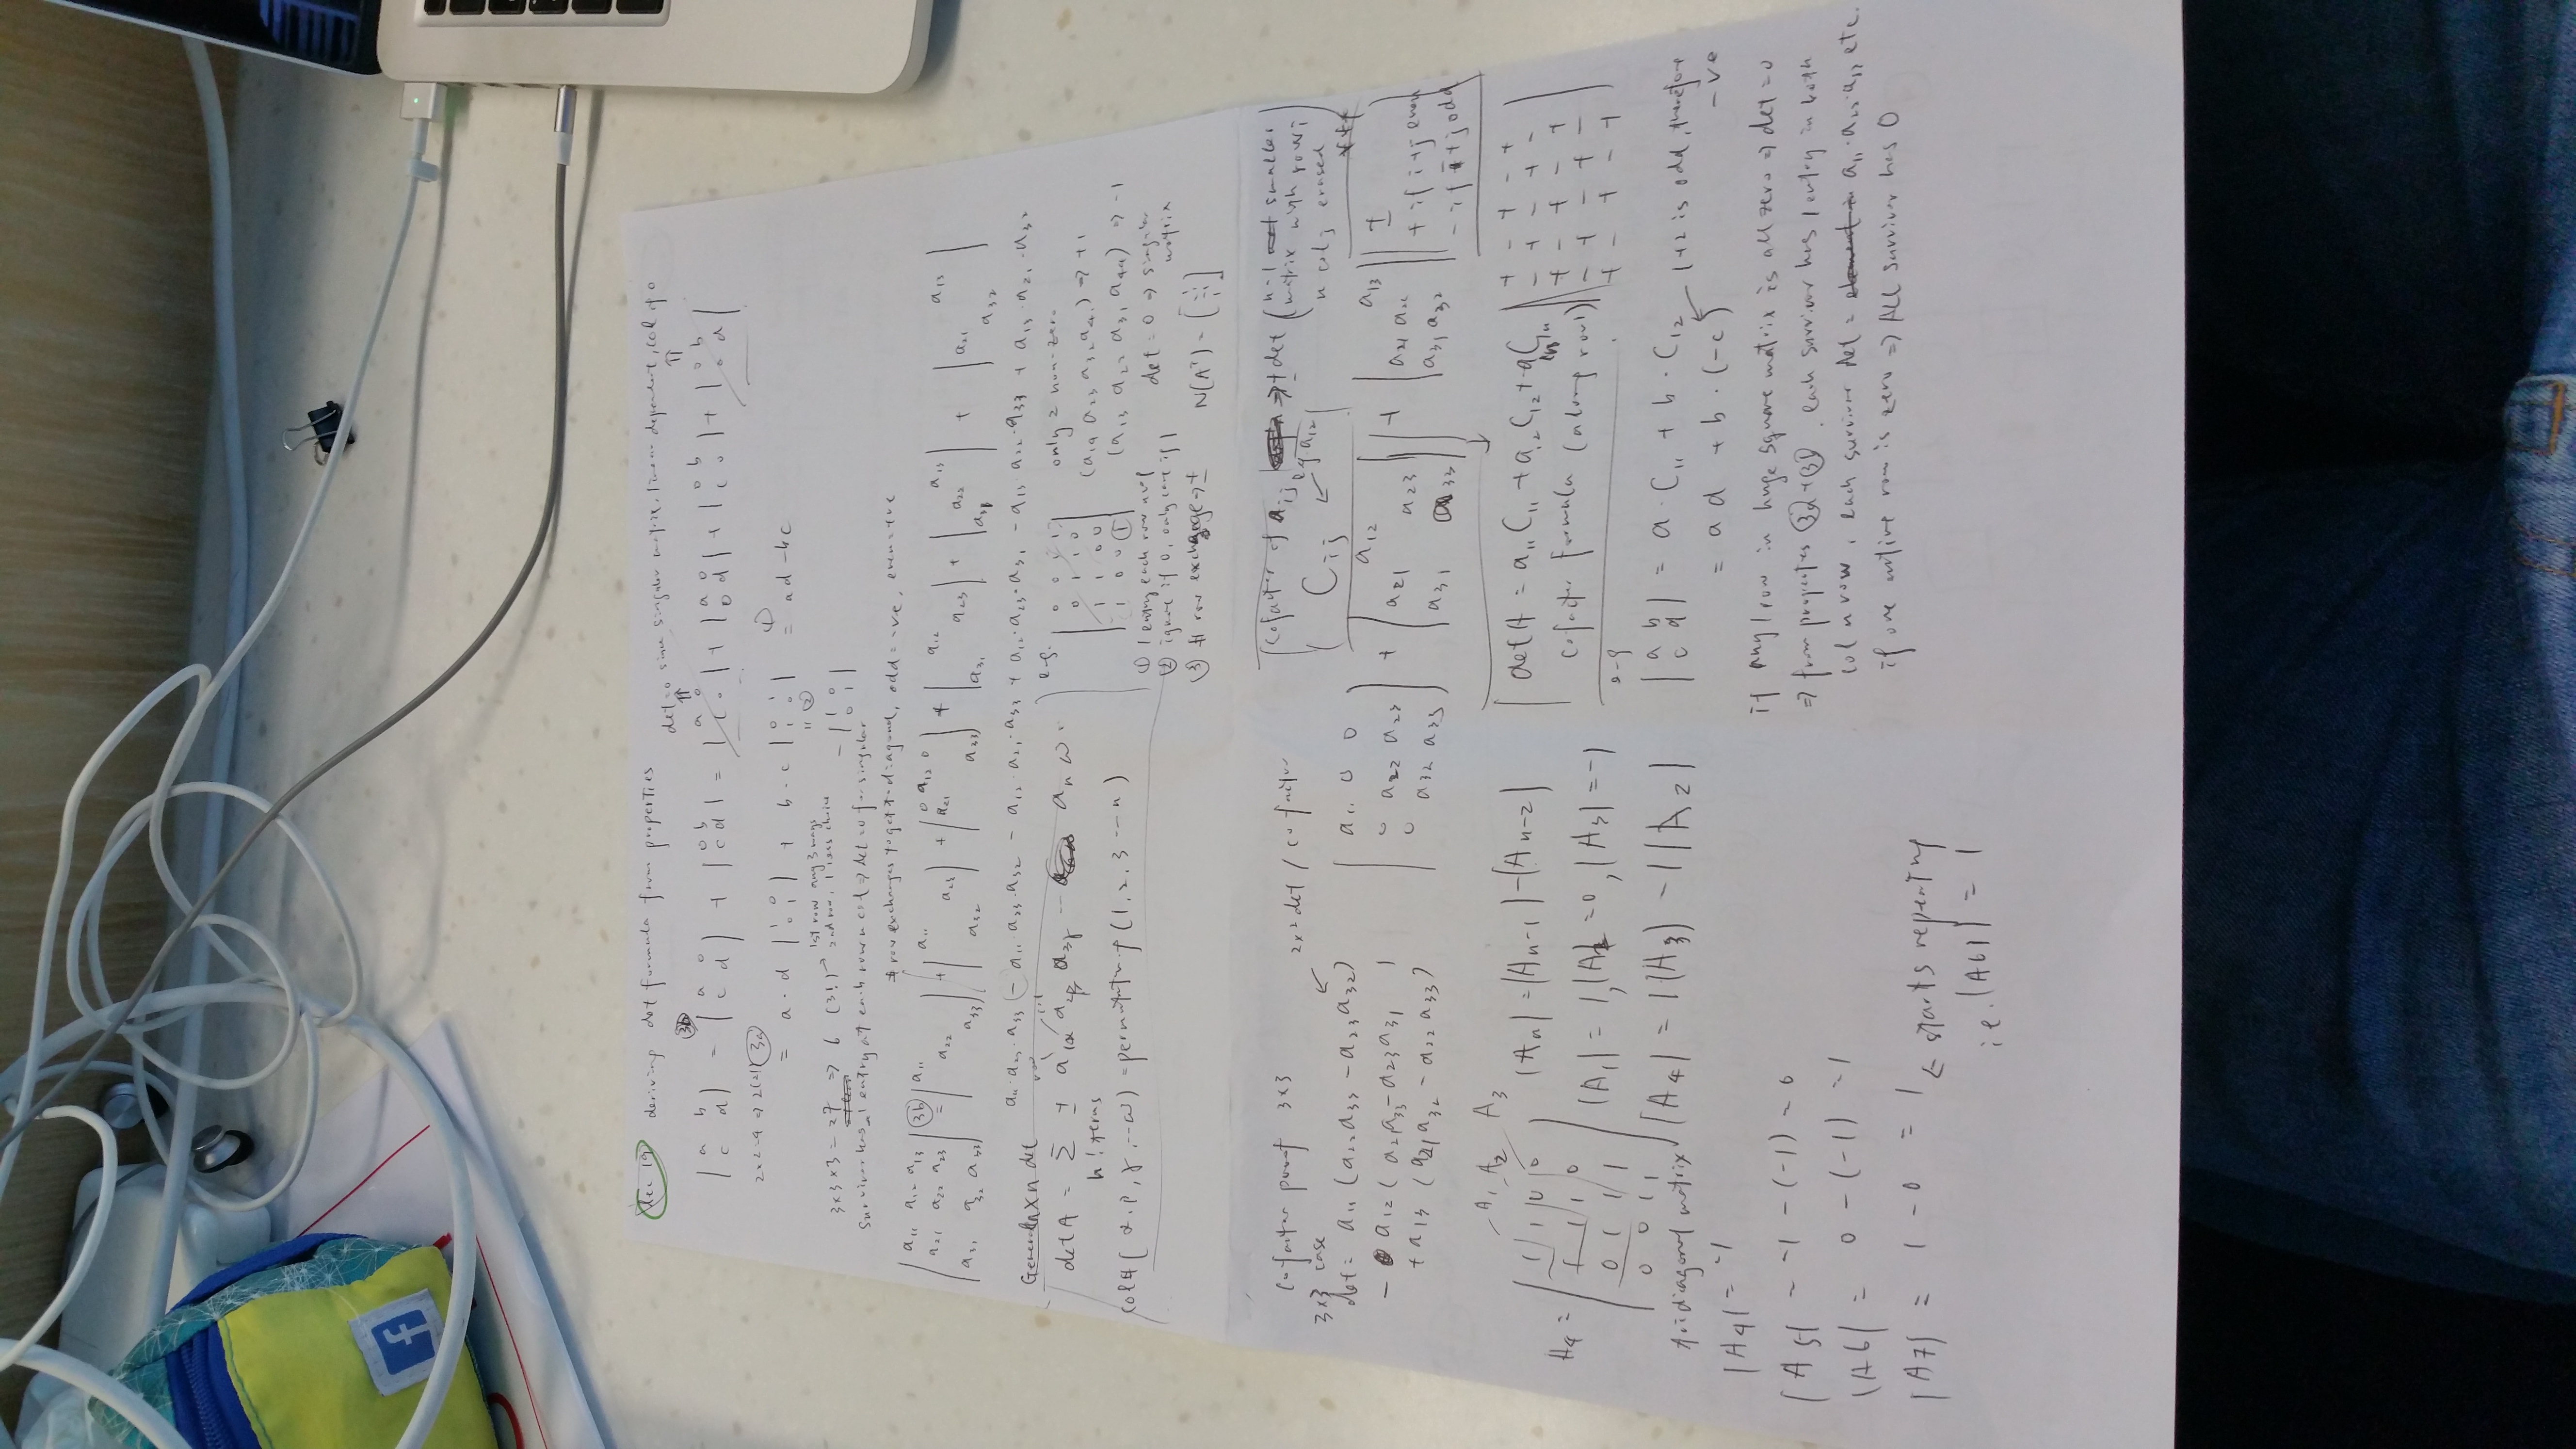 f
Lec 19 deriving det formula from properties
det=0 since singular matrix, linear dependent, col of 0
3b
| a b | = | a 0 | + | 0 b | = | a 0 | + | a 0 | + | 0 b | + | 0 b |
| c d | | c d | | c d | | c 0 | | 0 d | | c 0 | | 0 d |
2x2=4 => 2(2!) 3a
= a·d | 1 0 | + b·c | 0 1 | = ad-bc
| 0 1 | | 1 0 |
1
" 2
- | 1 0 |
| 0 1 |
3x3x3 = 27 => 6 (3!) → 1st row any 3 ways
2nd row, 1 less choice
survivor has 1 entry at each row n col => det=0 for singular
# row exchanges to get to diagonal, odd = -ve, even = +ve
| a11 a12 a13 | 3b | a11 | + | a11 | + | 0 a12 0 | + | a12 | + | a13 | + | a13 |
| a21 a22 a23 | = | a22 | | a23 | | a21 | | a23 | | a22 | | a21 |
| a31 a32 a33 | | a33 | | a32 | | a33 | | a31 | | a31 | | a32 |
a11·a22·a33 - a11·a23·a32 - a12·a21·a33 + a12·a23·a31 - a13·a22·a33 + a13·a21·a32
General nxn det
detA = Σ ± a1α a2β a3γ --- an ω
n! terms
col#(α, β, γ, --ω) = permutation of (1, 2, 3 --- n)
e.g.
| 0 0 1 1 |
| 0 1 1 0 |
| 1 1 0 0 |
| 1 0 0 1 |
only 2 non-zero
(a14 a23 a32 a41) => +1
(a13 a22 a31 a44) => -1
det = 0 => singular
matrix
1 1 entry each row n col
2 ignore if 0, only care if 1
3 # row exchange → ±
N(AT) =
cofactor proof 3x3
3x3 case
2x2 det / cofactor
det = a11 (a22a33 - a23a32)
- a12 (a21a33 - a23a31)
+ a13 (a21a32 - a22a33)
cofactor of aij => ± det (n-1 smaller
matrix with row i
n col j erased
Cij ← eg a12
***
| a11 0 0 | + | a12 | + | a13 |
| 0 a22 a23 | | a21 a23 | | a21 a22 |
| 0 a32 a33 | | a31 a33 | | a31 a32 |
±
+ if i+j even
- if i+j odd
A1 A2 A3
A4 = | 1 1 0 0 |
| 1 1 1 0 |
| 0 1 1 1 |
| 0 0 1 1 |
tridiagonal matrix
|An| = |An-1| - |An-2|
|A1| = 1, |A2| = 0, |A3| = -1
|A4| = 1|A3| - 1|A2|
|A4| = -1
|A5| = -1 - (-1) = 0
|A6| = 0 - (-1) = 1
|A7| = 1 - 0 = 1 ← starts repeating
i.e. |A61| = 1
detA = a11C11 + a12C12 + a1nC1n
cofactor formula (along row 1)
| + - + - + |
| - + - + - |
| + - + - + |
| - + - + - |
| + - + - + |
e-g
| a b | = a·C11 + b·C12
| c d | = ad + b·(-c) ← 1+2 is odd, therefore
-ve
if any 1 row in huge square matrix is all zero => det=0
=> from properties 3a + 3b, each survivor has 1 entry in both
col n row, each survivor det = a11·a22·a33 etc.
if one entire row is zero => All survivor has 0